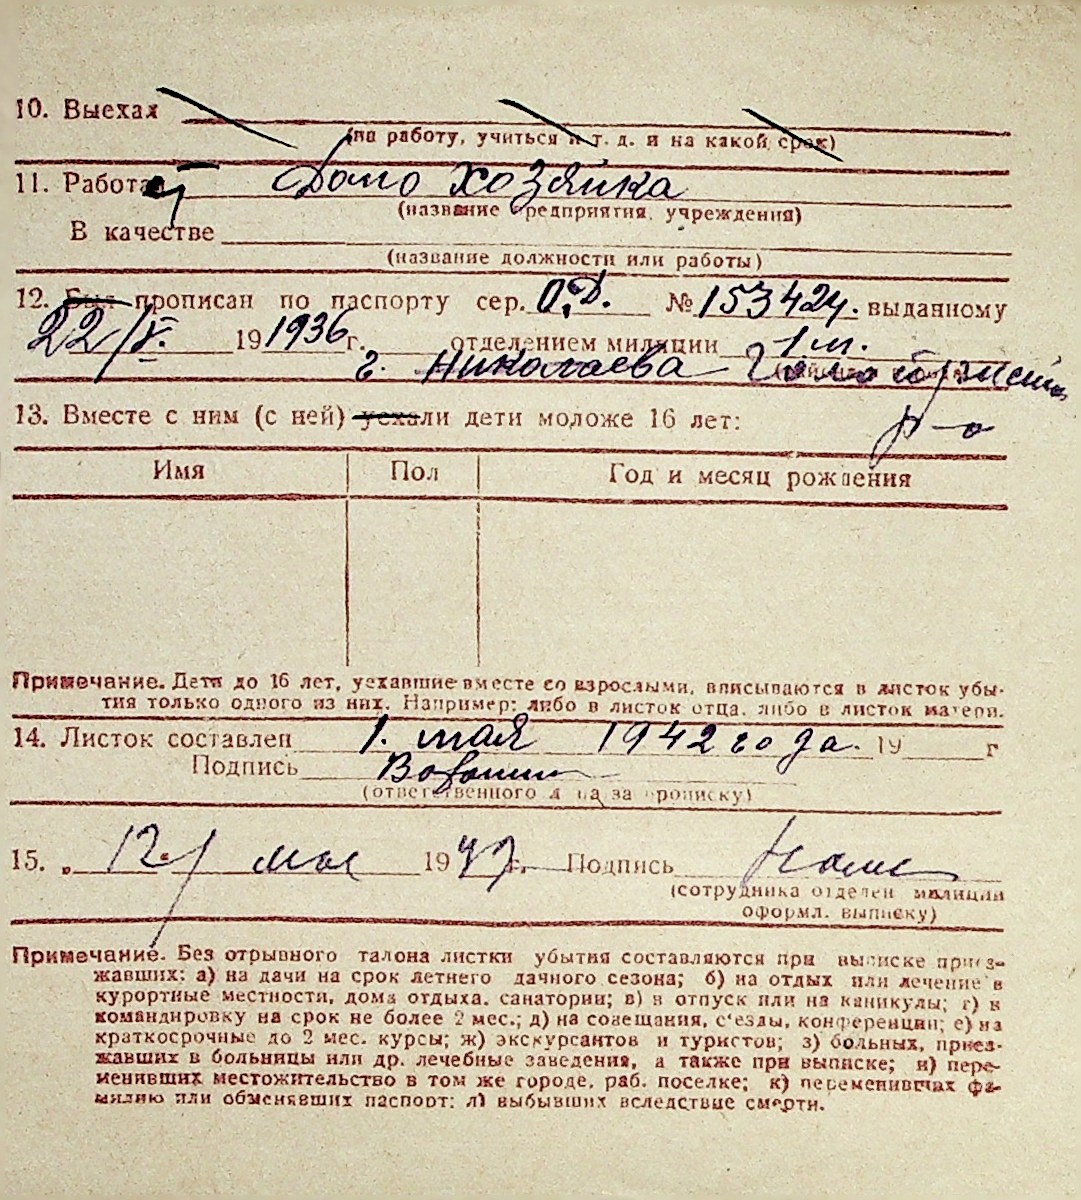 10. Выехал
(на работу, учиться и т. д. и на какой срок)
11. Работа Домохозяйка
(название предприятия, учреждения)
В качестве
(название должности или работы)
12. Был прописан по паспорту сер. О.Д. № 153424. выданному
22/V. 19 1936 г. отделением милиции 1 м.
г. Николаева
13. Вместе с ним (с ней) уехали дети моложе 16 лет:
Имя Пол Год и месяц рождения
Примечание. Дети до 16 лет, уехавшие вместе со взрослыми, вписываются в листок убы-
тия только одного из них. Например: либо в листок отца, либо в листок матери.
14. Листок составлен 1. мая 1942 года. 19 г
Подпись
(ответственного лица за прописку)
15. „ 12 мая 1942 г. Подпись
(сотрудника отделен милиции
оформл. выписку)
Примечание. Без отрывного талона листки убытия составляются при выписке приез-
жавших: а) на дачи на срок летнего дачного сезона; б) на отдых или лечение в
курортные местности, дома отдыха, санатории; в) в отпуск или на каникулы; г) в
командировку на срок не более 2 мес.; д) на совещания, с'езды, конференции; е) на
краткосрочные до 2 мес. курсы; ж) экскурсантов и туристов; з) больных, приез-
жавших в больницы или др. лечебные заведения, а также при выписке; и) пере-
менивших местожительство в том же городе, раб. поселке; к) переменивших фа-
милию или обменявших паспорт; л) выбывших вследствие смерти.